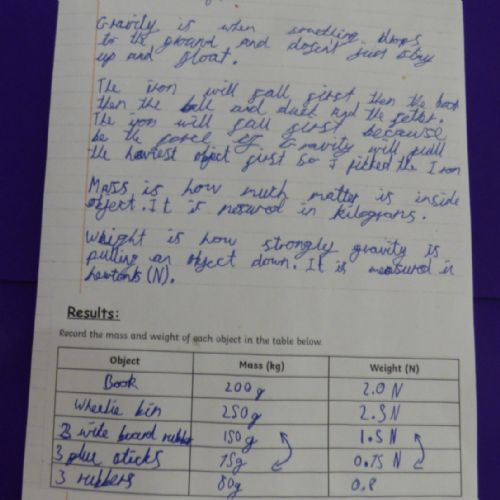 Gravity is when something drops
to the ground and dosent just stay
up and float.
The iron will fall first then the book
then the ball and and the
The iron will fall first because
be the force of Gravity will pull
the object first so I picked the Iron
Mass is how much matter is inside
object. It is mesured in kilograms.
Weight is how strongly gravity is
pulling an object down. It is measured in
newtons (N).
Results:
Record the mass and weight of each object in the table below
Object Mass (kg) Weight (N)
Book 200g 2.0 N
Wheelie bin 250g 2.5N
3 wite board rubber 150g 1.5 N
3 glue sticks 75g 0.75 N
3 rubbers 80g 0.8